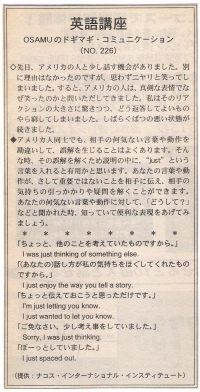 英語講座
OSAMUのドギマギ・コミュニケーション
(NO. 226)
◇先日、アメリカの人と少し話す機会がありました。別
に理由はなかったのですが、思わずニヤリと笑ってし
まいました。すると、アメリカの人は、真剣な表情でな
ぜ笑ったのかと問いただしてきました。私はそのリア
クションの大きさに驚きつつ、どう返答してよいもの
やら窮してしまいました。しばらくばつの悪い状態が
続きました。
◆アメリカ人同士でも、相手の何気ない言葉や動作を
勘違いして、誤解を生じることはよくあります。そん
な時、その誤解を解くため説明の中に、"just" という
言葉を入れると有用かと思います。あなたの言葉や動
作が、さして重要ではないことを相手に伝え、相手の
気持ちの引っかかりや疑問を解くことができます。
あなたの何気ない言葉や動作に対して、「どうして？」
などと聞かれた時、知っていて便利な表現をあげてみ
ましょう。
* * * * * * * *
「ちょっと、他のことを考えていたものですから。」
I was just thinking of something else.
「(あなたの)話し方が私の気持ちをほぐしてくれたもの
ですから。」
I just enjoy the way you tell a story.
「ちょっと伝えておこうと思っただけです。」
I'm just letting you know.
I just wanted to let you know.
「ご免なさい。少し考え事をしていました。」
Sorry, I was just thinking.
「ぼーっとしていました。」
I just spaced out.
(提供：ナコス・インターナショナル・インスティテュート)